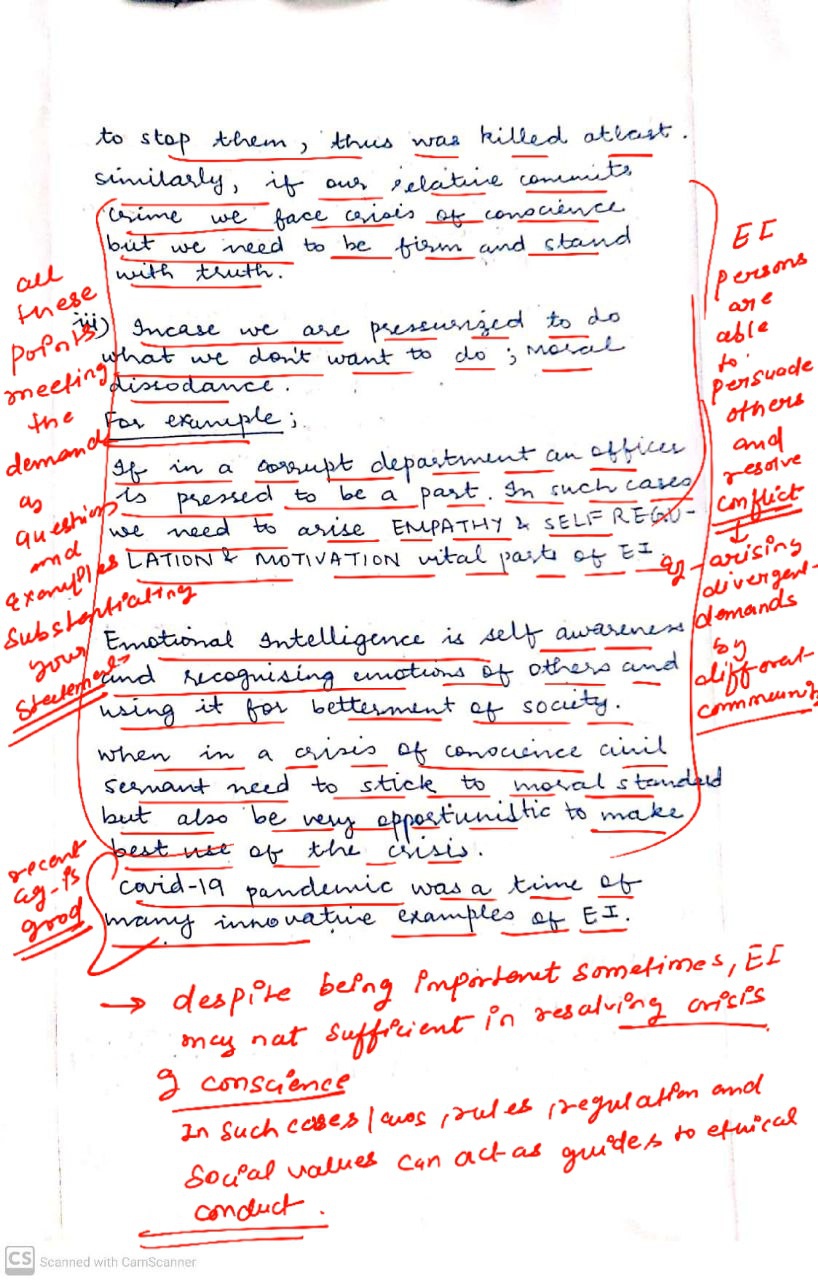 to stop them, thus was killed atlast.
similarly, if our relative commits
crime we face crisis of conscience
but we need to be firm and stand
with truth.
iii) Incase we are pressurized to do
what we don't want to do ; moral
dissodance.
For example ;
If in a corrupt department an officer
is pressed to be a part. In such cases
we need to arise EMPATHY & SELF REGU-
LATION & MOTIVATION vital parts of EI.
Emotional Intelligence is self awareness
and recognising emotions of others and
using it for betterment of society.
when in a crisis of conscience civil
servant need to stick to moral standard
but also be very opportunistic to make
best use of the crisis.
covid-19 pandemic was a time of
many innovative examples of EI.
all
these
points
meeting
the
demand
as
questions
and
examples
substantiating
your
statements
recent
eg-is
good
EI
persons
are
able
to
persuade
others
and
resolve
conflict
↓
eg-arising
divergent
demands
by
different
community
→ despite being important sometimes, EI
may not sufficient in resolving crisis
of conscience
In such cases laws, rules, regulation and
social values can act as guides to ethical
conduct.
CS Scanned with CamScanner